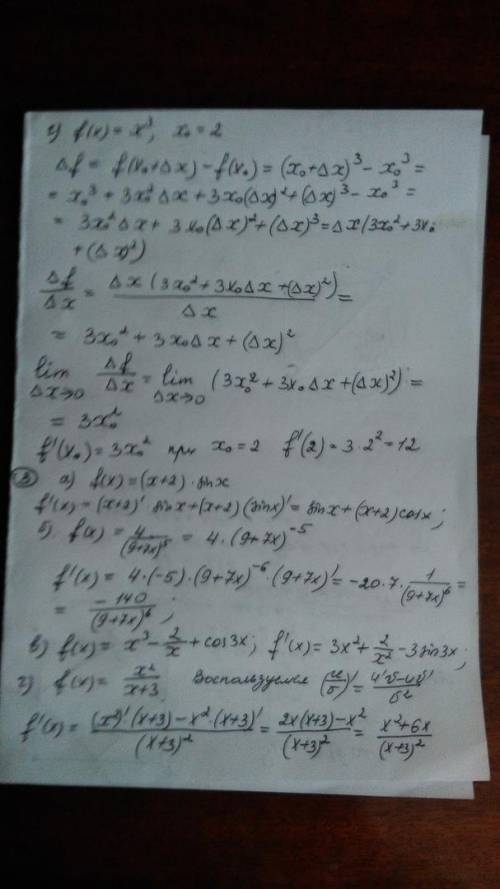 г) f(x) = x³, x₀ = 2
Δf = f(x₀+Δx) − f(x₀) = (x₀+Δx)³ − x₀³ =
= x₀³ + 3x₀²Δx + 3x₀(Δx)² + (Δx)³ − x₀³ =
= 3x₀²Δx + 3x₀(Δx)² + (Δx)³ = Δx(3x₀² + 3x₀
+ (Δx)²)
Δf/Δx = Δx(3x₀² + 3x₀Δx + (Δx)²)/Δx =
= 3x₀² + 3x₀Δx + (Δx)²
lim Δx→0 Δf/Δx = lim Δx→0 (3x₀² + 3x₀Δx + (Δx)²) =
= 3x₀²
f'(x₀) = 3x₀² при x₀ = 2 f'(2) = 3·2² = 12
③ а) f(x) = (x+2)·sinx
f'(x) = (x+2)' sinx + (x+2)(sinx)' = sinx + (x+2)cosx;
б). f(x) = 4/(9+7x)⁵ = 4·(9+7x)⁻⁵
f'(x) = 4·(−5)·(9+7x)⁻⁶·(9+7x)' = −20·7·1/(9+7x)⁶ =
= −140/(9+7x)⁶;
в) f(x) = x³ − 2/x + cos3x; f'(x) = 3x² + 2/x² − 3sin3x;
г) f(x) = x²/(x+3) Воспользуемся (u/v)' = (u'v−uv')/v²
f'(x) = ((x²)'(x+3) − x²·(x+3)')/(x+3)² = (2x(x+3) − x²)/(x+3)² = (x²+6x)/(x+3)²